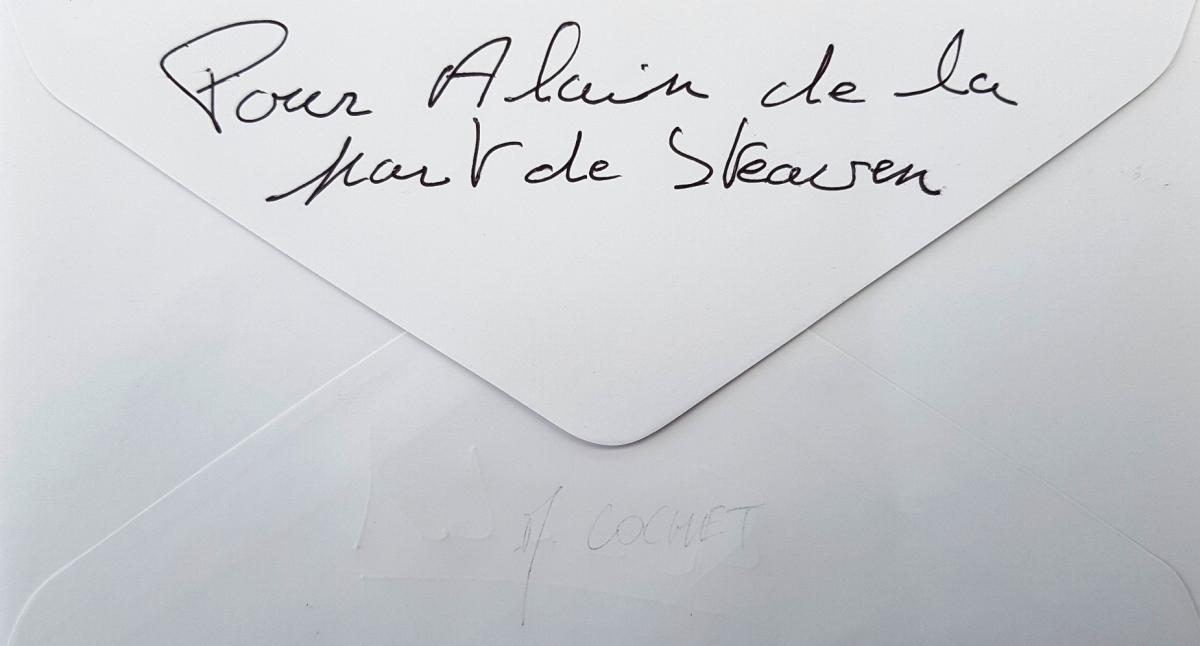 Pour Alain de la
part de Steauven
COCHET